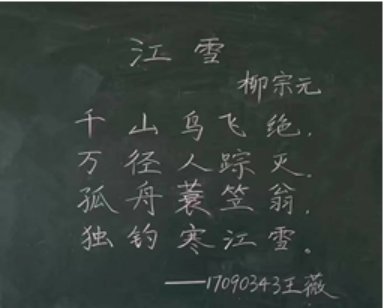 江雪
柳宗元
千山鸟飞绝.
万径人踪灭.
孤舟蓑笠翁.
独钓寒江雪。
——17090343王薇